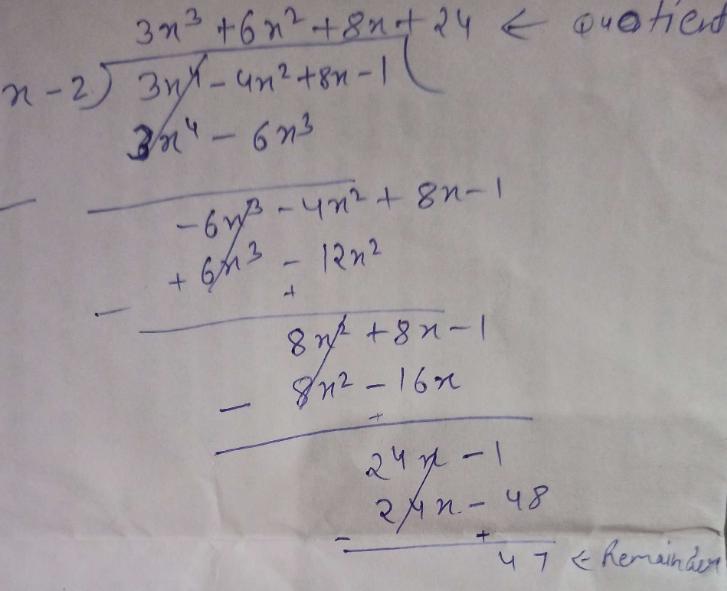 3x³ + 6x² + 8x + 24 ← Quotient
x - 2 ) 3x⁴ - 4x² + 8x - 1 (
3x⁴ - 6x³
-
-6x³ - 4x² + 8x - 1
+ 6x³ - 12x²
- +
8x² + 8x - 1
- 8x² - 16x
+
24x - 1
24x - 48
- +
47 ← Remainder